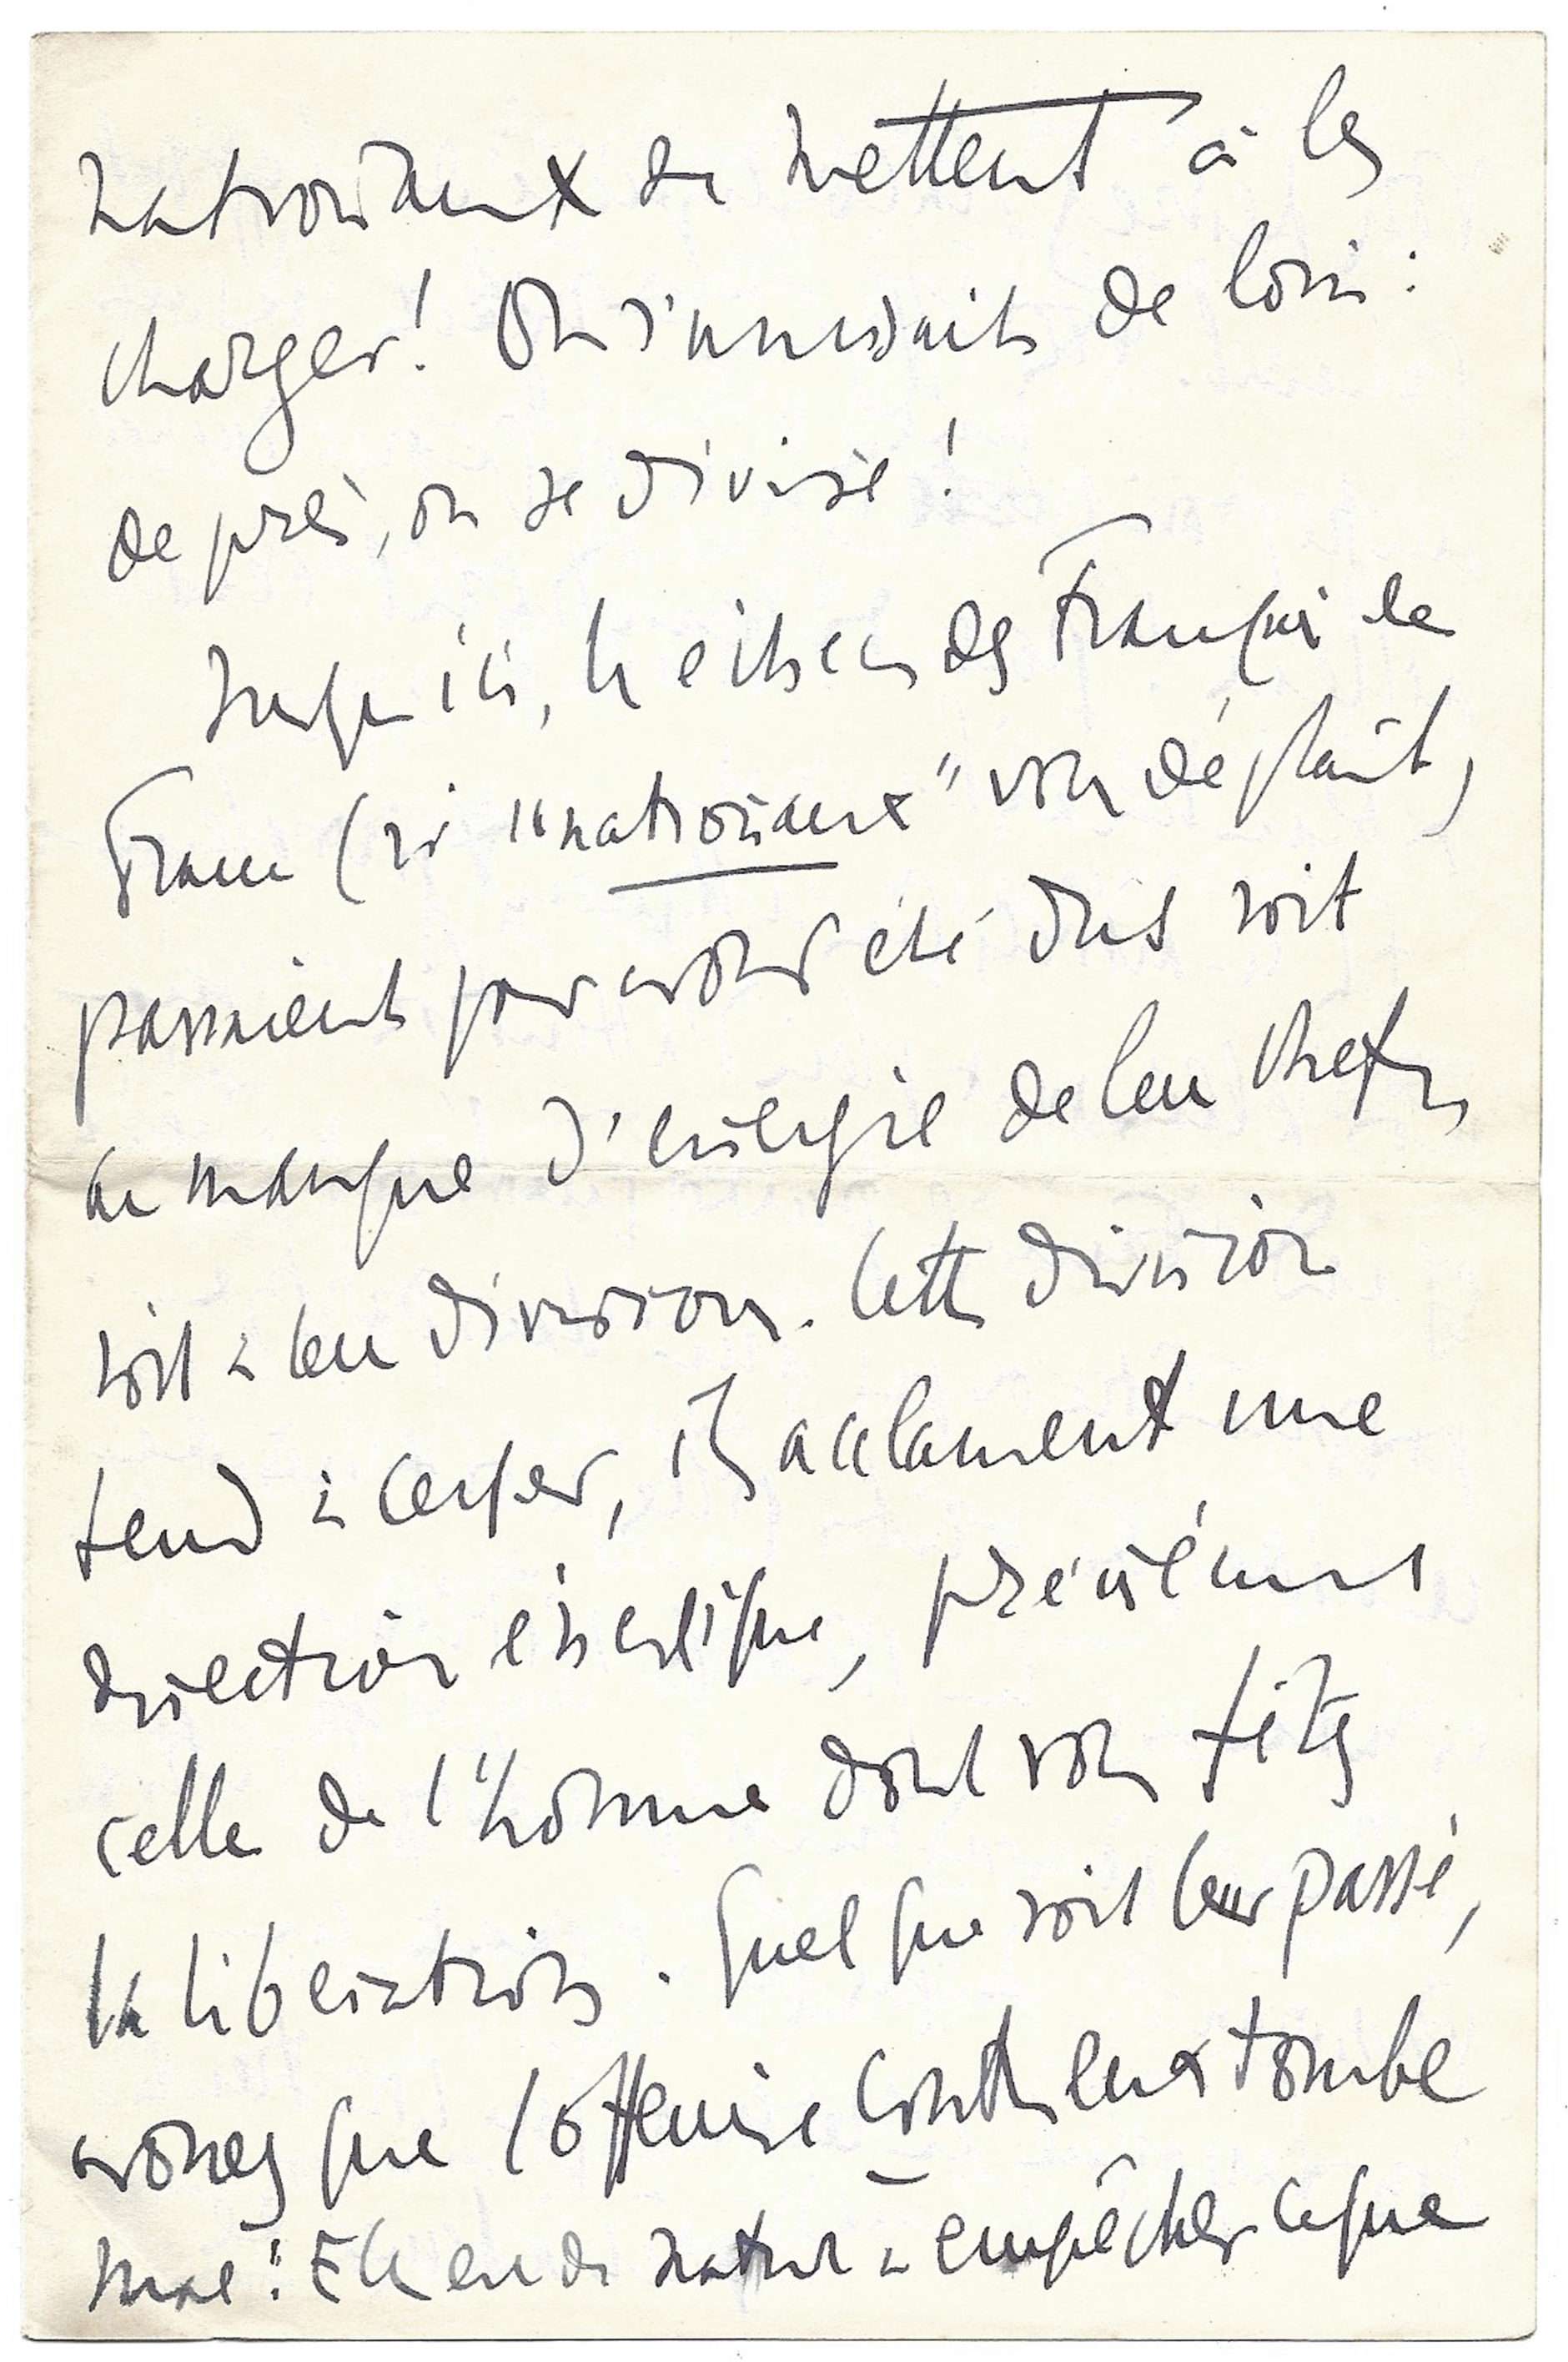 nationaux se mettent à les
charger! On s'unissait de loin:
de près, on se divise!
Jusqu'ici, les des Français de
France (si "nationaux" vous déplaît)
passaient pour avoir été dus soit
au manque d'énergie de leurs chefs
soit à leurs divisions. Cette division
tend à cesser, ils acclament une
direction énergique, précisément
celle de l'homme dont vous fêtez
la libération. Quel que soit leur passé,
avouez que l'offensive contre eux tombe
mal! Elle est de nature à empêcher ce que